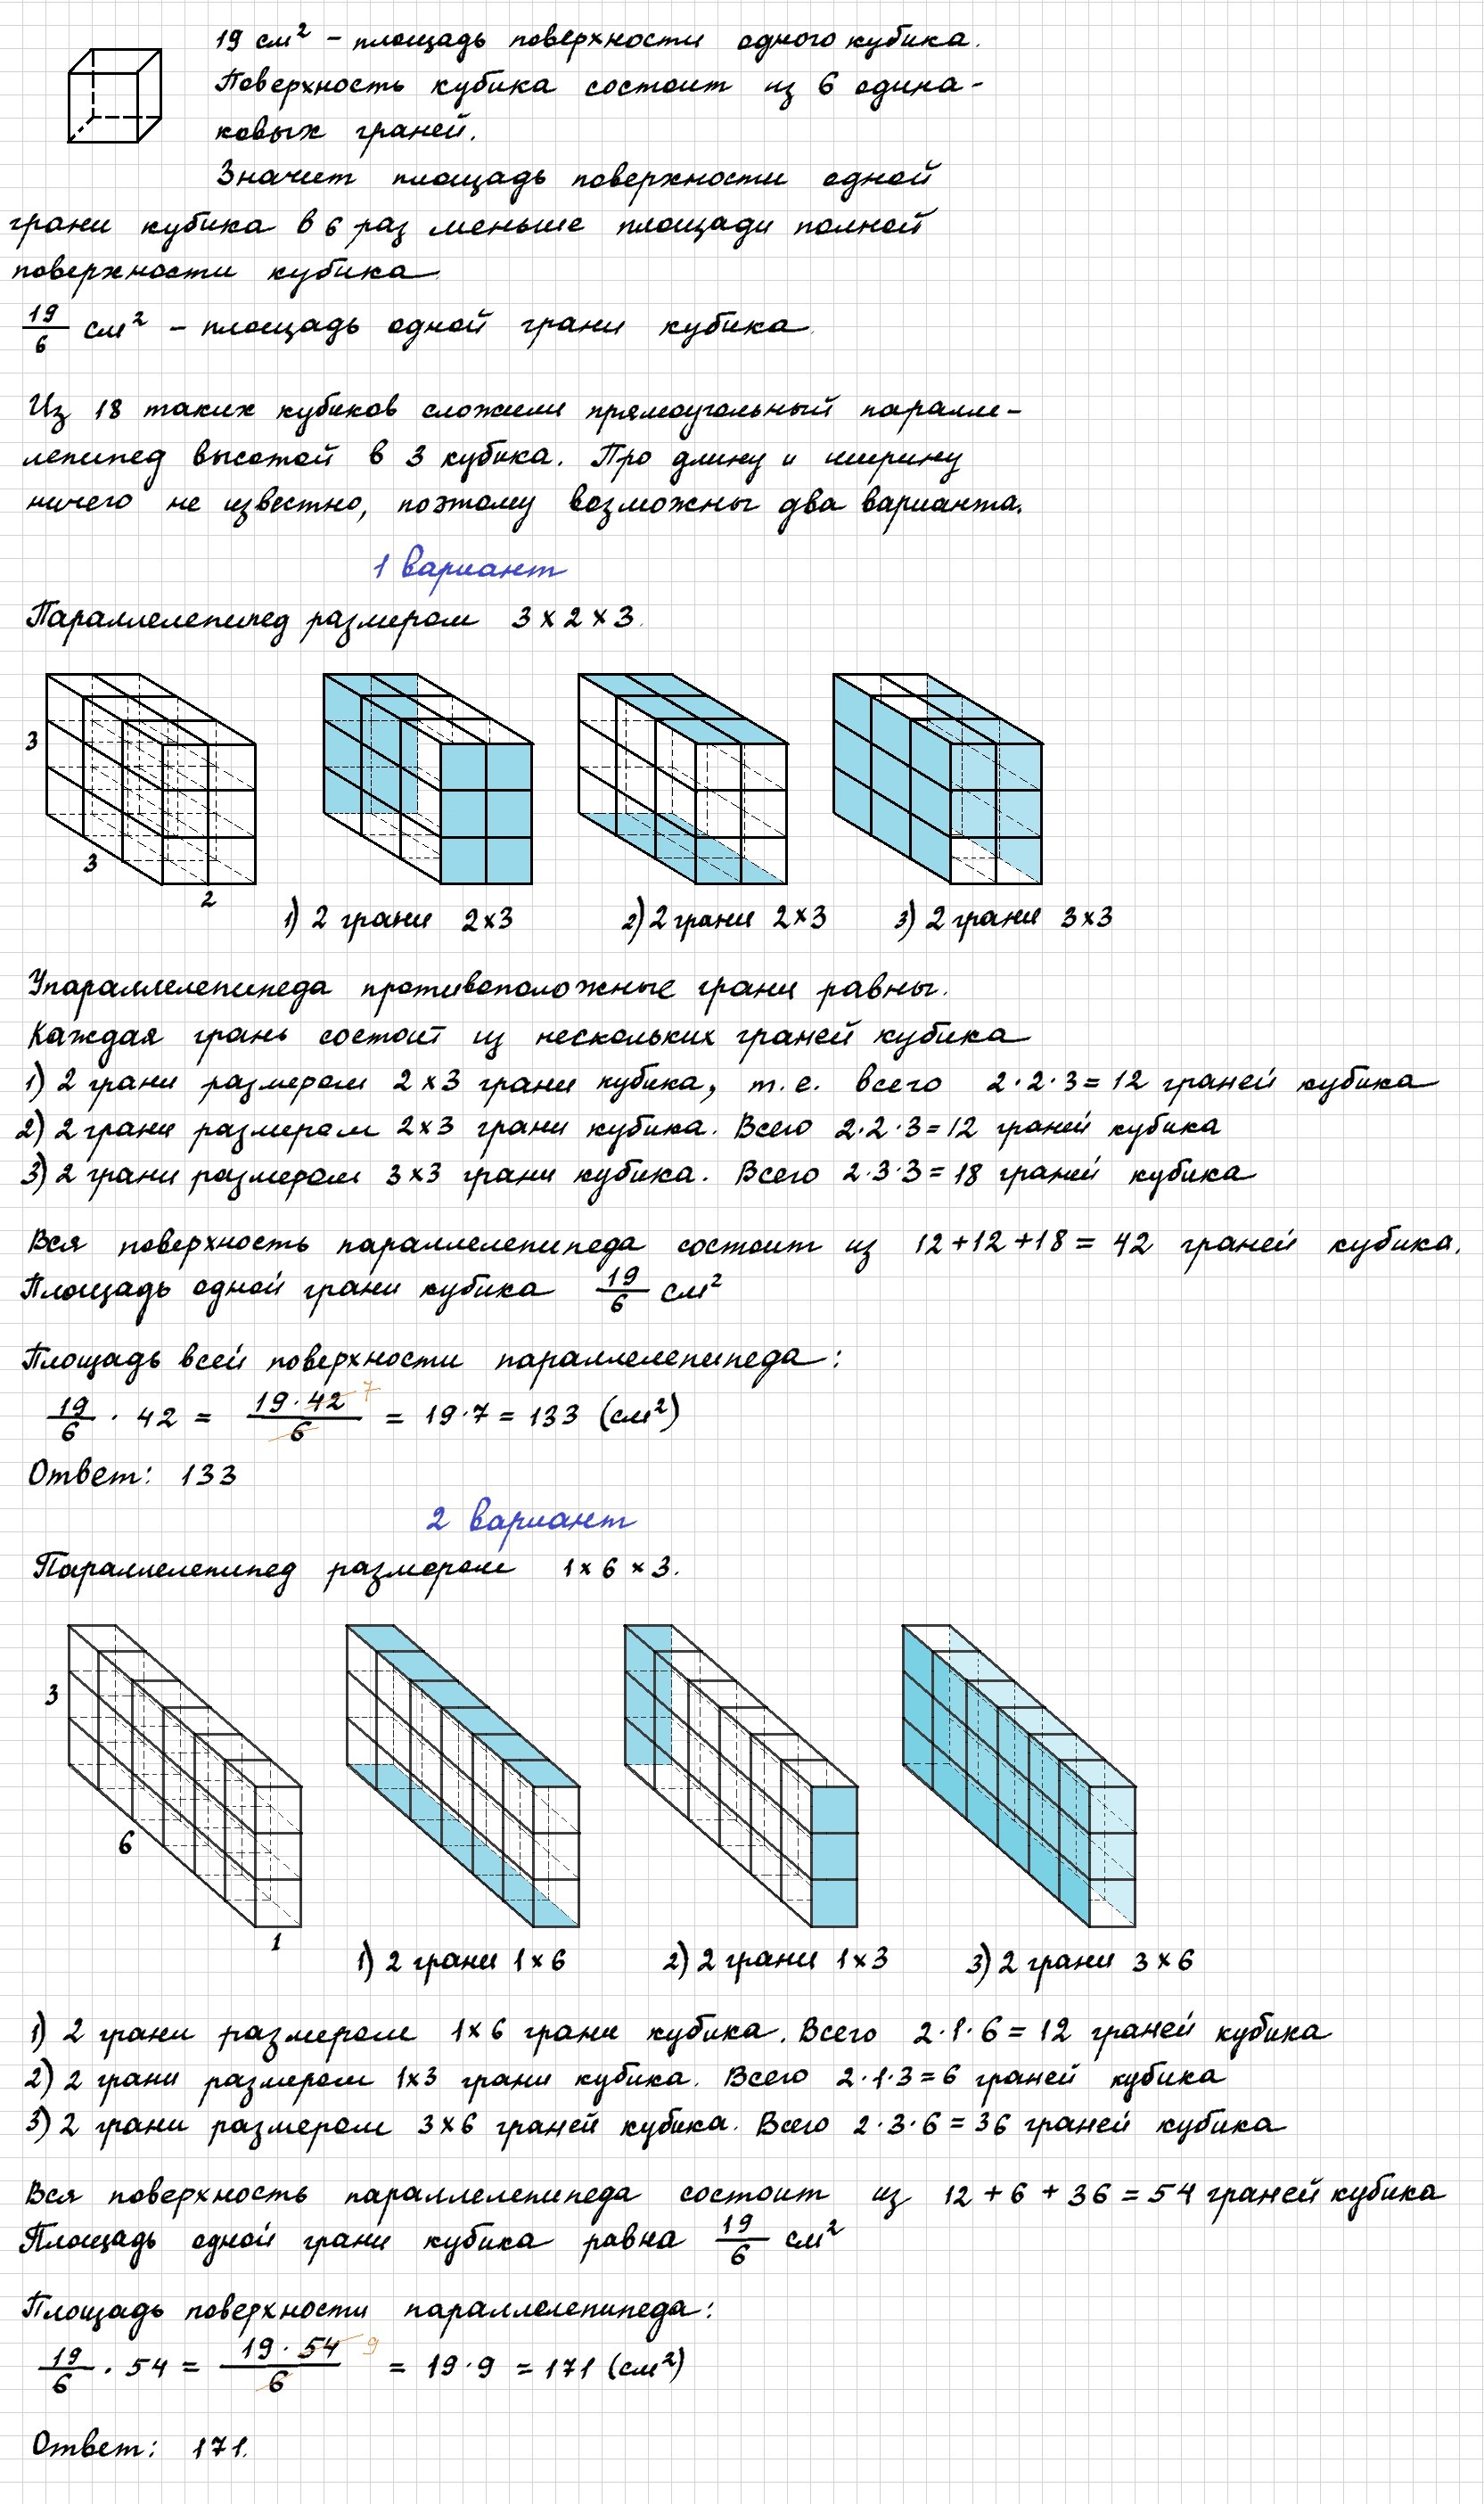 19 см² – площадь поверхности одного кубика.
Поверхность кубика состоит из 6 одина-
ковых граней.
Значит площадь поверхности одной
грани кубика в 6 раз меньше площади полной
поверхности кубика.
19/6 см² – площадь одной грани кубика.
Из 18 таких кубиков сложили прямоугольный паралле-
лепипед высотой в 3 кубика. Про длину и ширину
ничего не известно, поэтому возможны два варианта.
1 вариант
Параллелепипед размером 3 × 2 × 3.
3
3
2
1) 2 грани 2×3
2) 2 грани 2×3
3) 2 грани 3×3
У параллелепипеда противоположные грани равны.
Каждая грань состоит из нескольких граней кубика
1) 2 грани размером 2×3 грани кубика, т.е. всего 2·2·3=12 граней кубика
2) 2 грани размером 2×3 грани кубика. Всего 2·2·3=12 граней кубика
3) 2 грани размером 3×3 грани кубика. Всего 2·3·3=18 граней кубика
Вся поверхность параллелепипеда состоит из 12+12+18=42 граней кубика.
Площадь одной грани кубика 19/6 см²
Площадь всей поверхности параллелепипеда:
19/6 · 42 = 19·42/6 7 = 19·7 = 133 (см²)
Ответ: 133
2 вариант
Параллелепипед размером 1 × 6 × 3.
3
6
1
1) 2 грани 1×6
2) 2 грани 1×3
3) 2 грани 3×6
1) 2 грани размером 1×6 грани кубика. Всего 2·1·6=12 граней кубика
2) 2 грани размером 1×3 грани кубика. Всего 2·1·3=6 граней кубика
3) 2 грани размером 3×6 граней кубика. Всего 2·3·6=36 граней кубика
Вся поверхность параллелепипеда состоит из 12 + 6 + 36 = 54 граней кубика
Площадь одной грани кубика равна 19/6 см²
Площадь поверхности параллелепипеда:
19/6 · 54 = 19·54/6 9 = 19·9 = 171 (см²)
Ответ: 171.